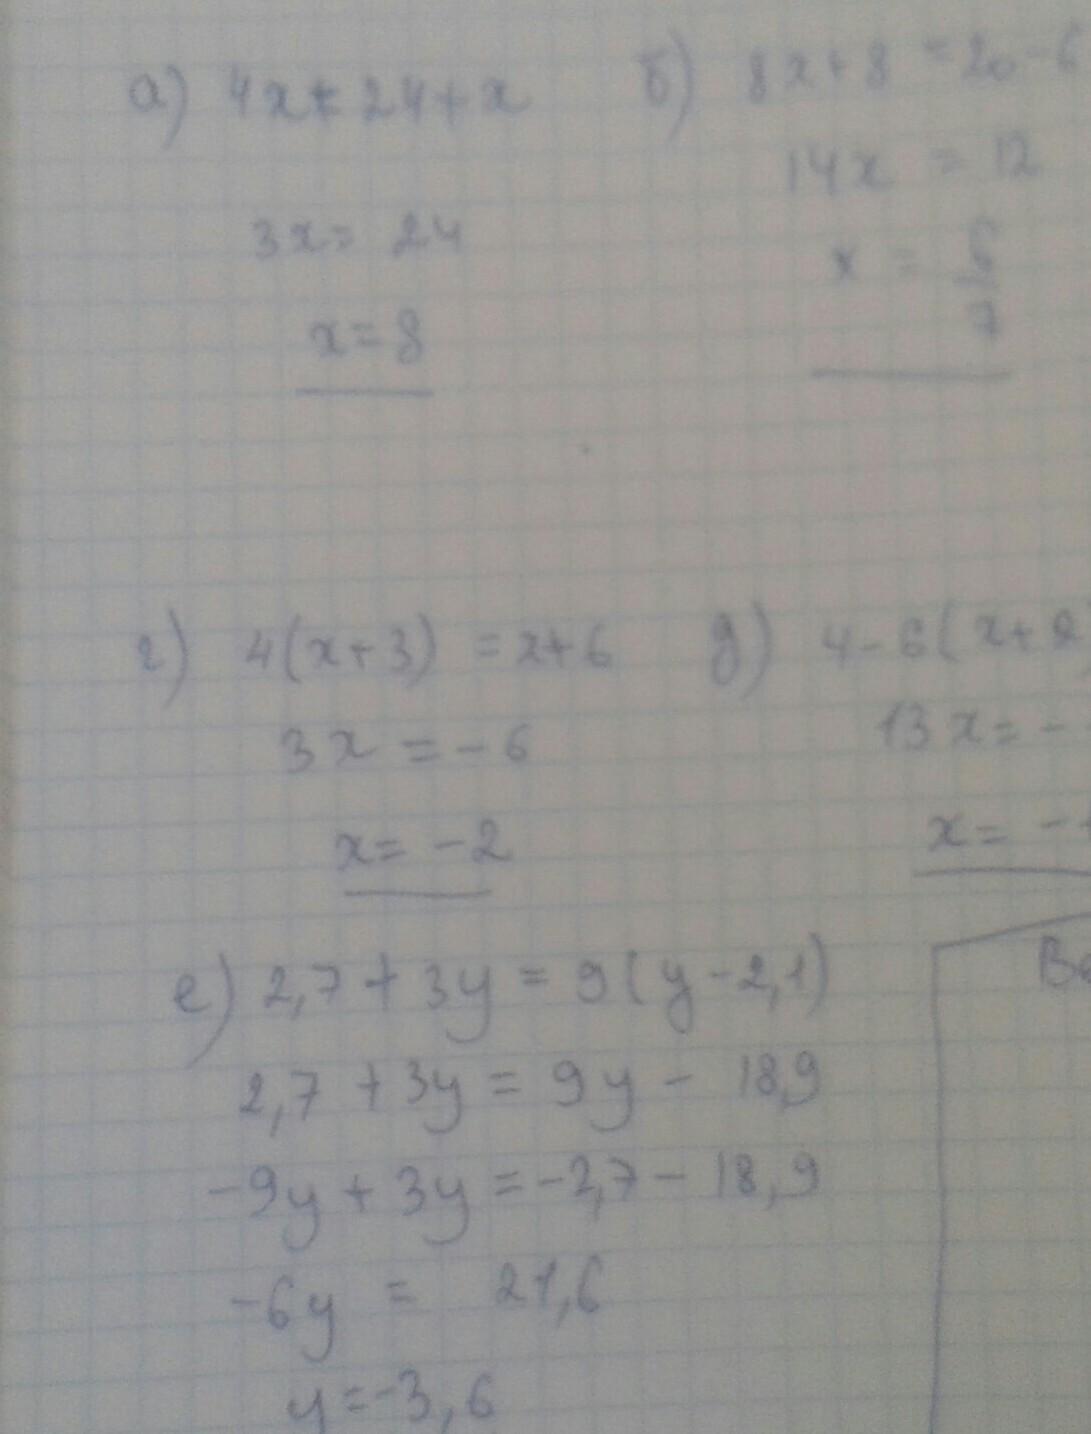 а) 4x = 24 + x
б) 8x + 8 = 20 - 6
3x = 24
14x = 12
x = 8
x = 6/7
г) 4(x + 3) = x + 6
д) 4 - 6(x + 2
3x = -6
13x = -
x = -2
x = -
е) 2,7 + 3y = 9(y - 2,1)
2,7 + 3y = 9y - 18,9
-9y + 3y = -2,7 - 18,9
-6y = 21,6
y = -3,6